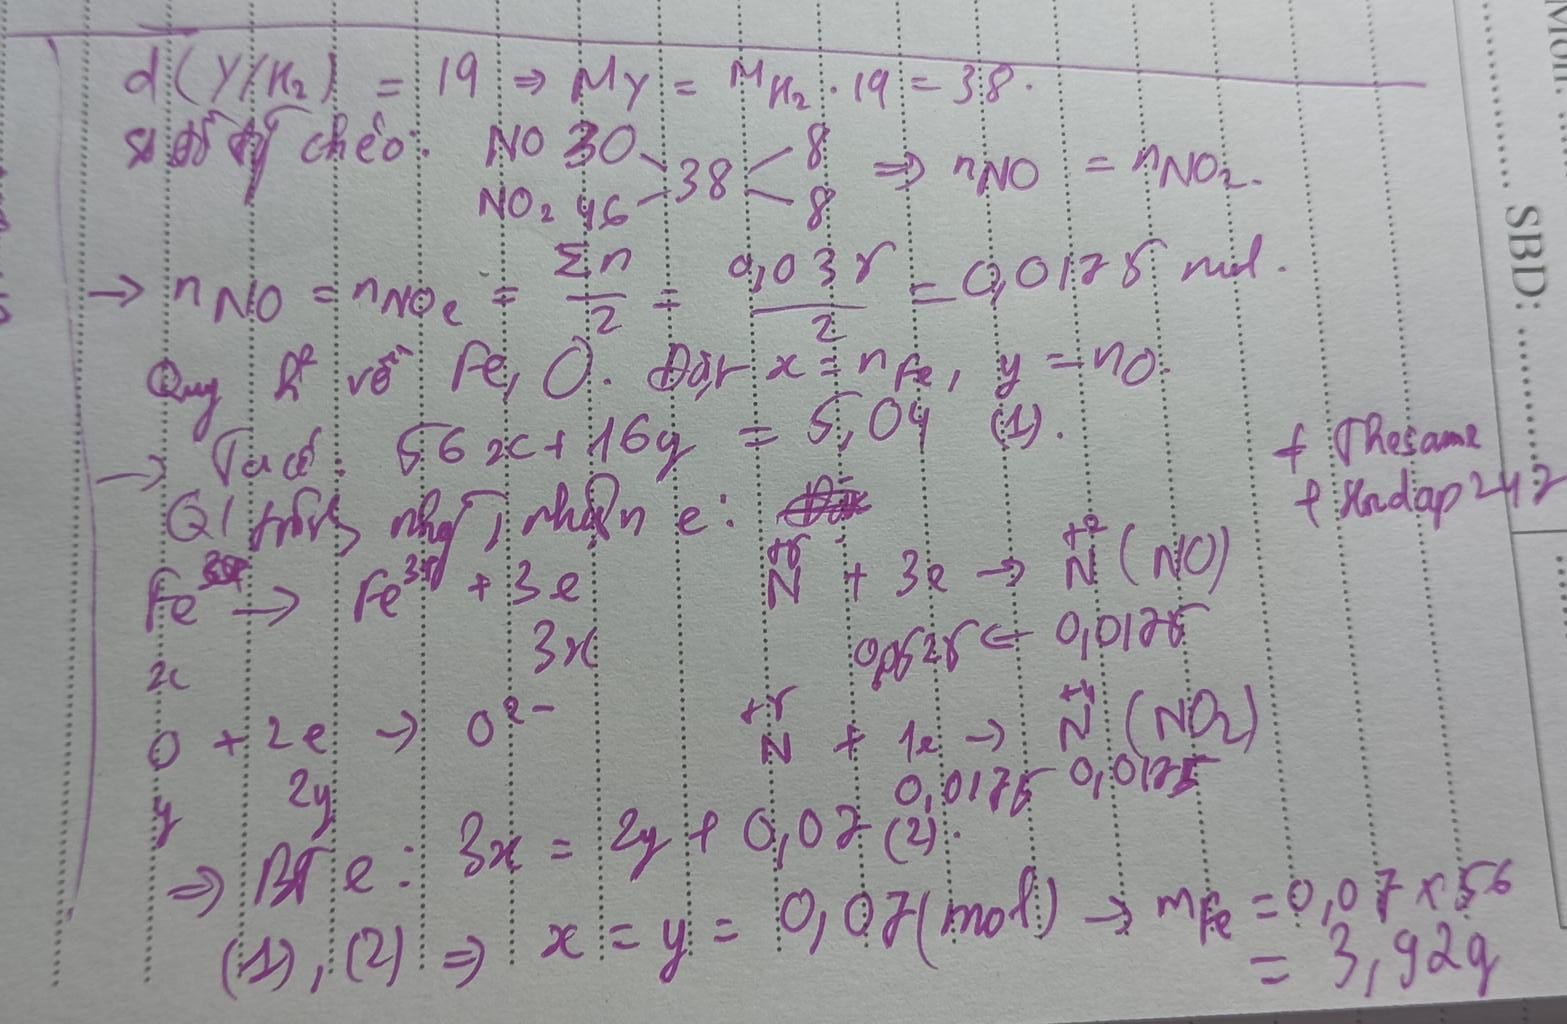 d(Y/H₂) = 19 ⇒ MY = MH₂ . 19 = 38.
sơ đồ chéo: NO 30 38 8 ⇒ nNO = nNO₂.
NO₂ 46 8
→ nNO = nNO₂ = Σn/2 = 0,035/2 = 0,0175 mol.
Quy h² về Fe, O. Đặt x = nFe, y = nO.
→ Ta có: 56x + 16y = 5,04 (1).
+ Thesame
+ Hndap247
QT nhg, nhận e:
Fe → Fe³⁺ + 3e N⁺⁵ + 3e → N⁺² (NO)
x 3x 0,0525 ← 0,0175
O + 2e → O²⁻ N⁺⁵ + 1e → N⁺⁴ (NO₂)
y 2y 0,0175 0,0175
⇒ BT e: 3x = 2y + 0,07 (2).
(1), (2) ⇒ x = y = 0,07 (mol) → mFe = 0,07 x 56
= 3,92g
SBD: ........